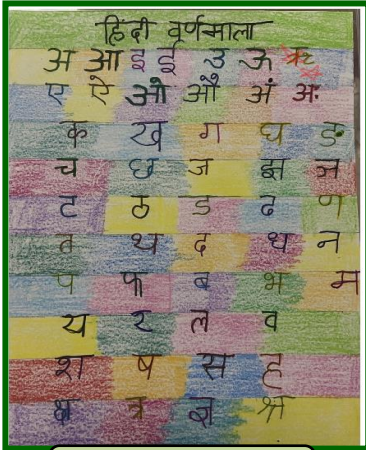 हिंदी वर्णमाला
अ आ इ ई उ ऊ ऋ
ए ऐ ओ औ अं अः
क ख ग घ ङ
च छ ज झ ञ
ट ठ ड ढ ण
त थ द ध न
प फ ब भ म
य र ल व
श ष स ह
क्ष त्र ज्ञ श्र